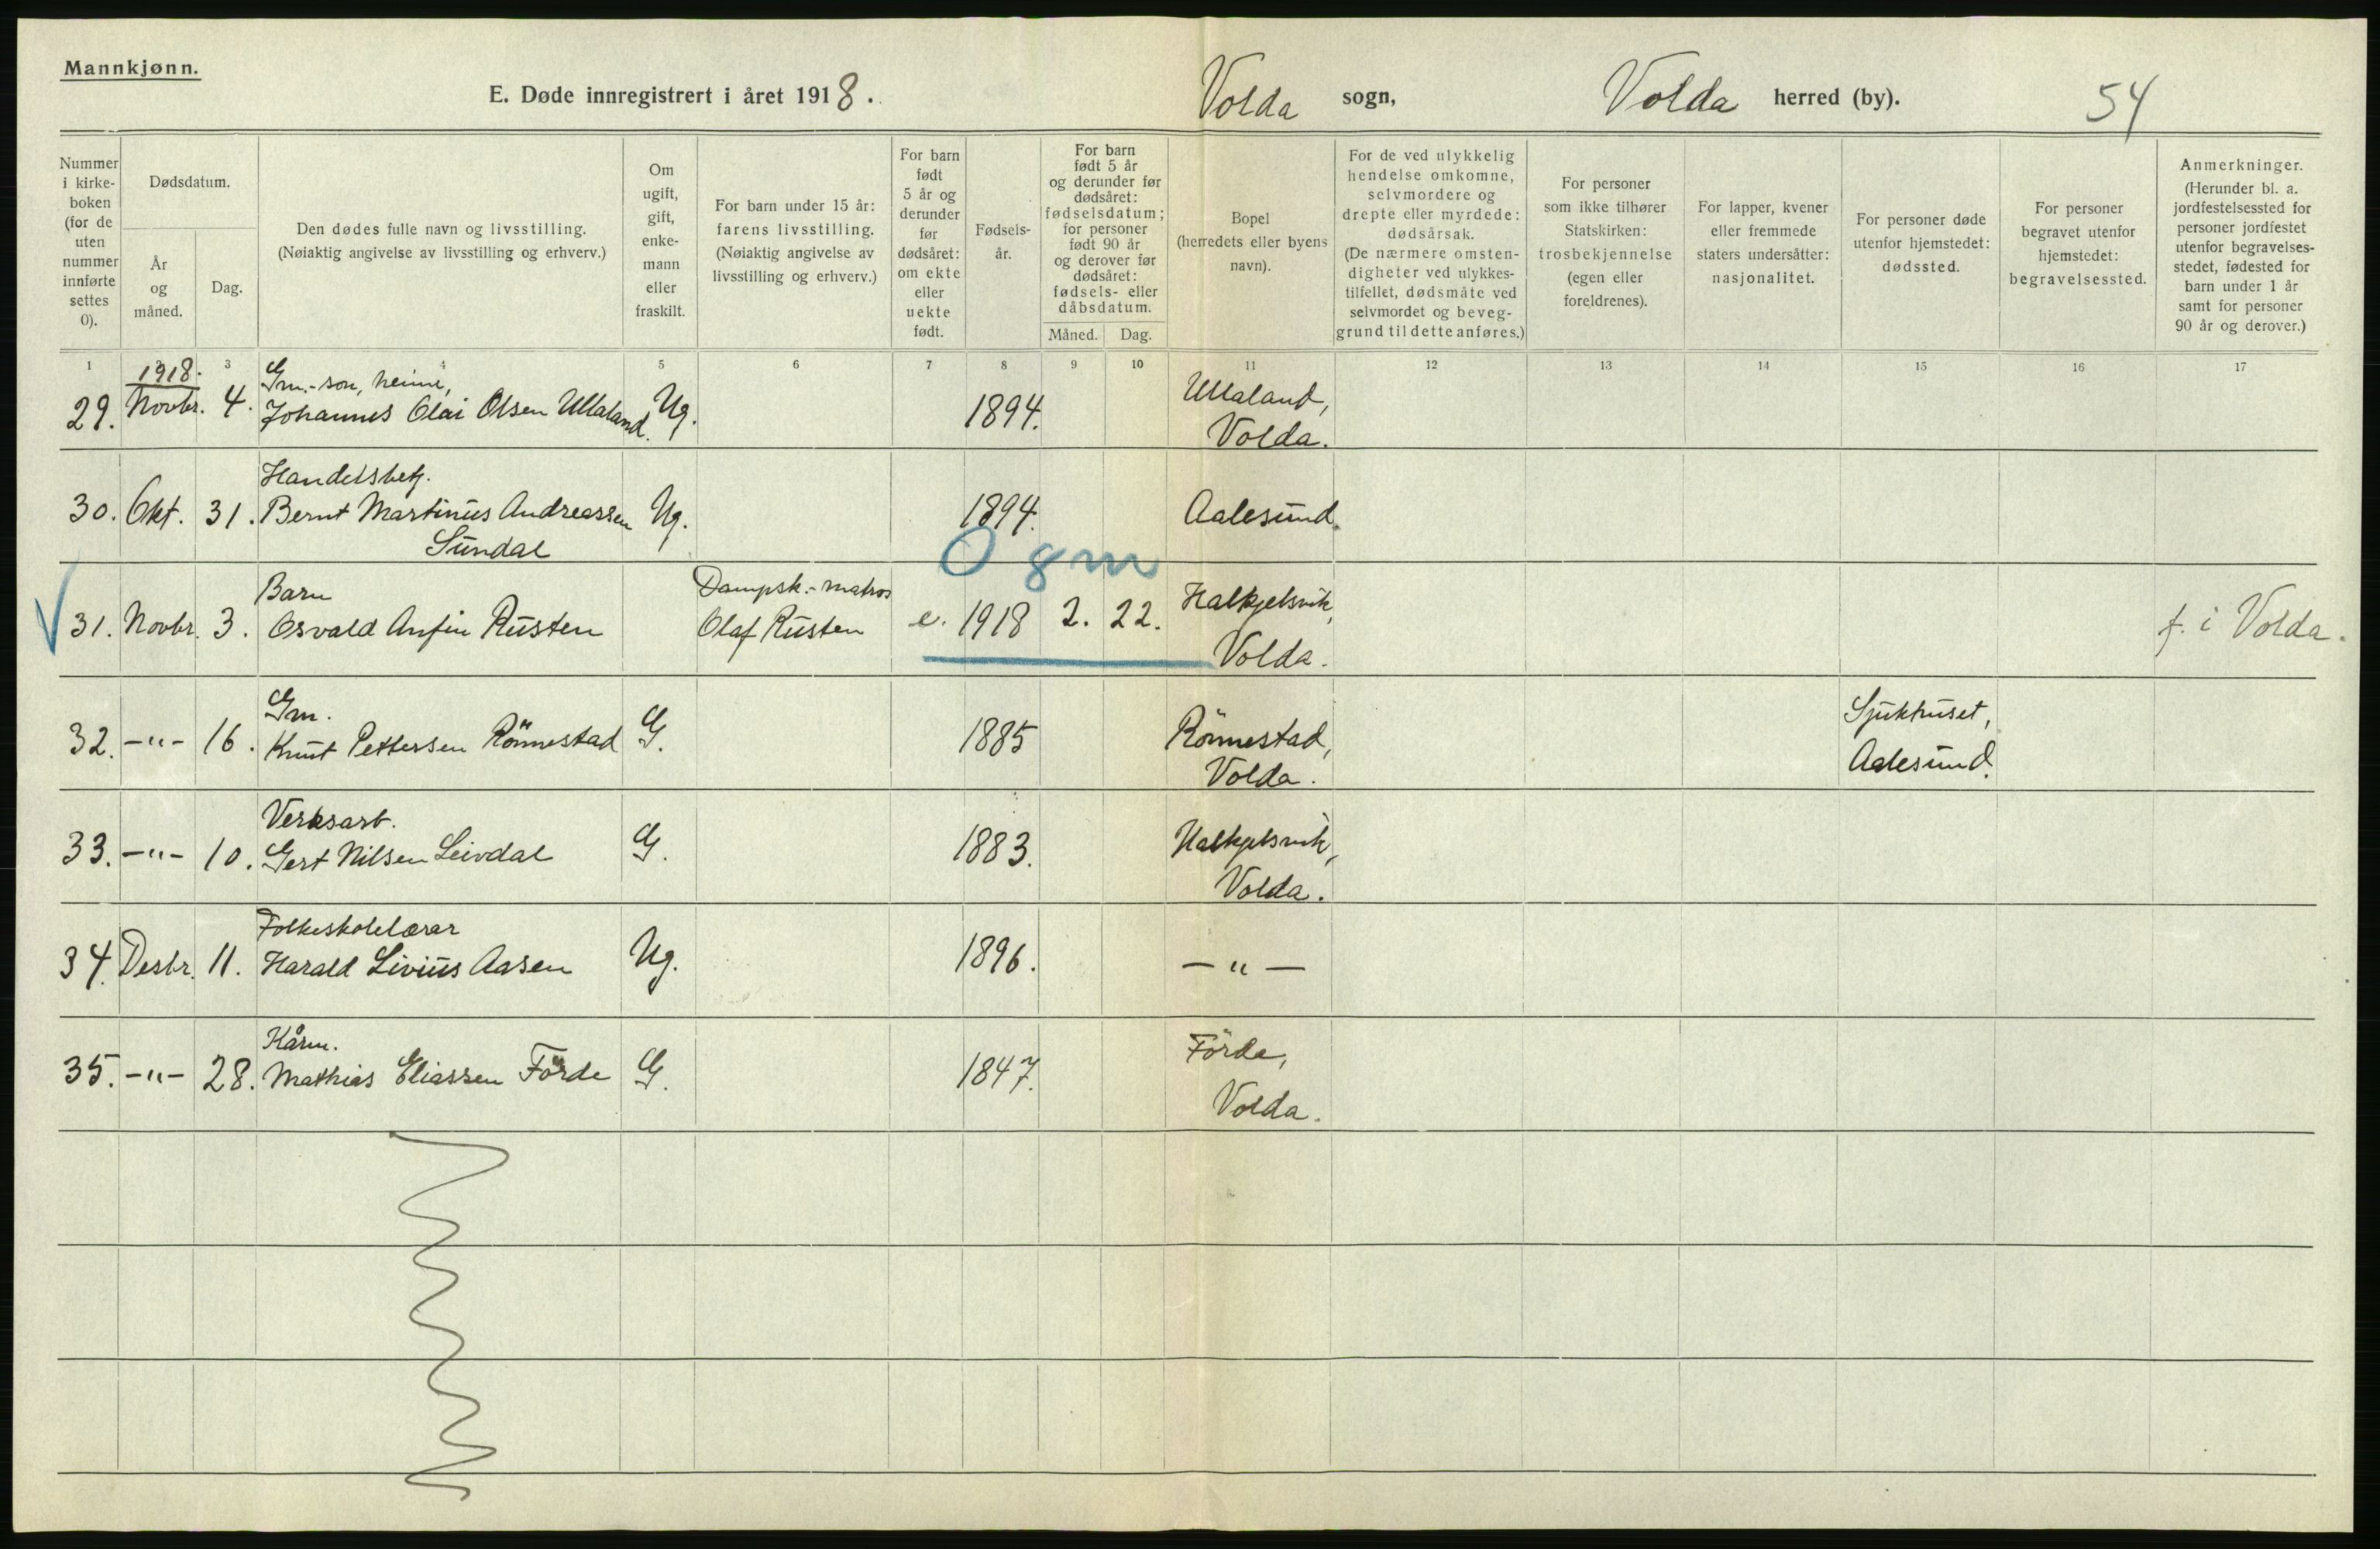 Mannkjønn.
E. Døde innregistrert i året 1918. Volda sogn, Volda herred (by). 54
Nummer i kirke- boken (for de uten nummer innførte settes 0).
Dødsdatum.
År og måned.
Dag.
Den dødes fulle navn og livsstilling.
(Nøiaktig angivelse av livsstilling og erhverv.)
Om ugift, gift, enke- mann eller fraskilt.
For barn under 15 år: farens livsstilling.
(Nøiaktig angivelse av livsstilling og erhverv.)
For barn født 5 år og derunder før dødsåret: om ekte eller uekte født.
Fødsels- år.
For barn født 5 år og derunder før dødsåret: fødselsdatum; for personer født 90 år og derover før dødsåret: fødsels- eller dåbsdatum.
Måned. Dag.
Bopel (herredets eller byens navn).
For de ved ulykkelig hendelse omkomne, selvmordere og drepte eller myrdede: dødsårsak.
(De nærmere omsten- digheter ved ulykkes- tilfellet, dødsmåte ved selvmordet og beveg- grund til dette anføres.)
For personer som ikke tilhører Statskirken: trosbekjennelse (egen eller foreldrenes).
For lapper, kvener eller fremmede staters undersåtter: nasjonalitet.
For personer døde utenfor hjemstedet: dødssted.
For personer begravet utenfor hjemstedet: begravelsessted.
Anmerkninger.
(Herunder bl. a. jordfestelsessted for personer jordfestet utenfor begravelses- stedet, fødested for barn under 1 år samt for personer 90 år og derover.)
1 2 3 4 5 6 7 8 9 10 11 12 13 14 15 16 17
1918.
Gm.-son, heime,
29. Novbr. 4. Johannes Olai Olsen Ullaland. Ug. 1894. Ullaland,
Volda.
Handelsbetj.
30. Okt. 31. Bernt Martinus Andreassen Ug. 1894. Aalesund.
Sundal
0 8 m
Barn Dampsk.-matros
31. Novbr. 3. Osvald Anfin Rusten Olaf Rusten e. 1918 2. 22. Halkjelsvik, f. i Volda.
Volda.
Gm. Sjukhuset,
32. -"- 16. Knut Pettersen Rönnestad G. 1885 Rönnestad, Aalesund.
Volda.
Verksarb.
33. -"- 10. Gert Nilsen Leivdal G. 1883. Halkjelsvik,
Volda.
Folkeskolelærar
34. Desbr. 11. Harald Livius Aasen Ug. 1896. - " -
Kårm.
35. -"- 28. Mathias Eliassen Förde G. 1847. Förde,
Volda.